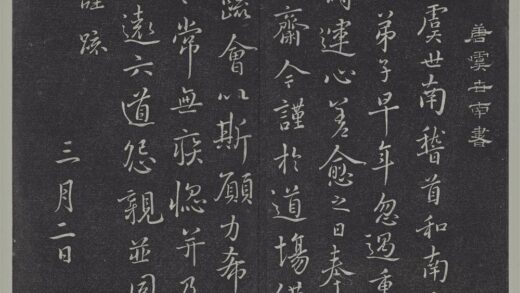 唐虞世南書
虞世南稽首和南
弟子早年忽遇重
時運心差愈之日奉
齋今謹於道場供
蔬會以斯願力希
常無疾惱并及
遠六道怨親並同
謹疏
三月二日